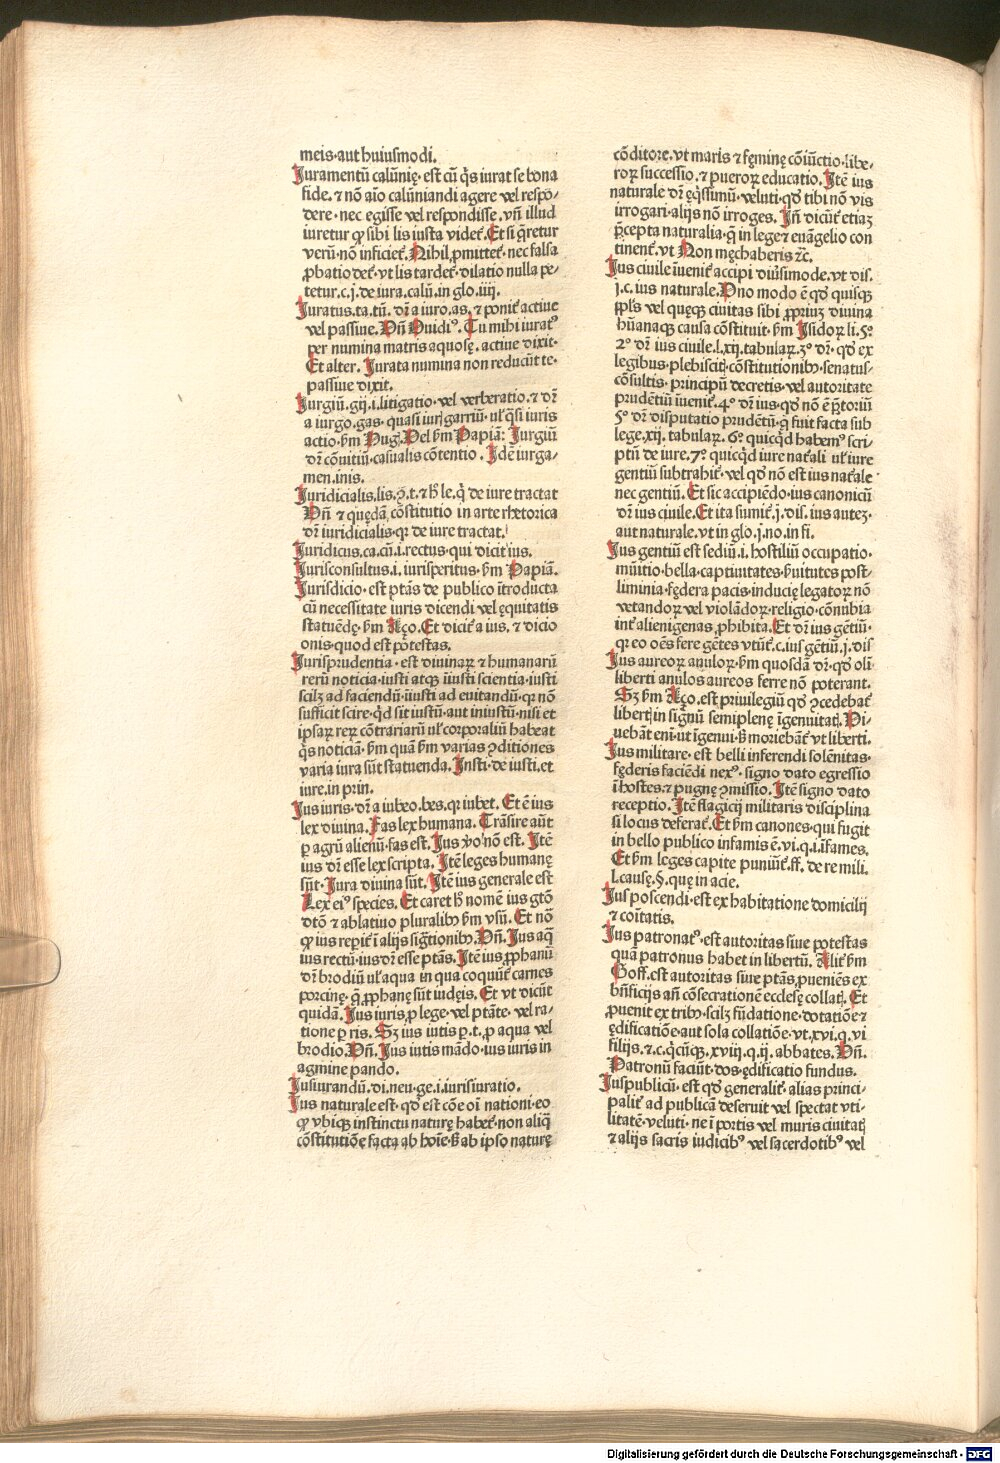 meis·aut huiusmodi.
Iuramentū calūnię·est cū q̄s iurat se bona
fide.⁊ nō aīo calūniandi agere vel respō-
dere·nec egisse vel respondisse.vn̄ illud
iuretur ꝙ sibi lis iusta videt᷑.Et si q̄retur
verū·nō inficiet᷑.Nihil ꝓmittet᷑·nec falsa
ꝓbatio det᷑·vt lis tardet᷑·dilatio nulla pe-
tetur.c.j.de iura.calū.in glo.iiij.
Iuratus.ta.tū. dr̄ a iuro.as.⁊ ponit᷑ actiue
vel passiue. Vn̄ Ouidiꝰ. Tu mihi iuratꝰ
per numina matris aquosę.actiue dixit·
Et alter. Iurata numina non reducūt te·
passiue dixit.
Iurgiū.gij.i.litigatio·vel verberatio.⁊ dr̄
a iurgo.gas·quasi iurj garriū·ul' q̄si iuris
actio·ẜm Hug.Vel ẜm Papiā: Iurgiū
dr̄ cōuitiū·casualis cōtentio. Idē iurga-
men.inis.
Iuridicialis.lis.ꝑ.t.⁊ h̄ le.q̄ de iure tractat
Vn̄ ⁊ quędā cōstitutio in arte rhetorica
dr̄ iuridicialis·qr de iure tractat.
Iuridicus.ca.cū.i.rectus·qui dicit ius.
Iurisconsultus.i.iurisperitus·ẜm Papiā.
Iurisdicio·est ptās de publico ītroducta
cū necessitate iuris dicendi vel ęquitatis
statuēdę·ẜm Aço.Et dicit᷑ a ius.⁊ dicio
onis·quod est potestas.
Iurisprudentia·est diuinaꝝ ⁊ humanarū
rerū noticia·iusti atqꝫ iiusti scientia·iusti
scilꝫ ad faciendū·iiusti ad euitandū·qr nō
sufficit scire·qd sit iustū·aut iniustū·nisi et
ipsaꝝ reꝝ cōtrariarū ul' corporaliū habeat
q̄s noticiā·ẜm quā ẜm varias ꝯditiones
varia iura sūt statuenda.Insti·de iusti.et
iure.in prin.
Ius iuris·dr̄ a iubeo.bes.qr iubet. Et ē ius
lex diuina. Fas lex humana. Trāsire aūt
ꝑ agrū alienū·fas est.Ius ṽo nō est. Itē
ius dr̄ esse lex scripta. Itē leges humanę
sūt·Iura diuina sūt. Itē ius generale est
Lex eiꝰ species. Et caret h̄ nomē ius gtō
dtō ⁊ ablatiuo pluralibꝫ ẜm vsū. Et nō
ꝙ ius repit᷑ ī alijs sig̅tionibꝫ.Vn̄.Ius aq̄
ius rectū·ius dr̄ esse ptās.Itē ius ꝓphanū
dr̄ brodiū ul' aqua in qua coquūt᷑ carnes
porcinę·q̄ ꝓphanę sūt iudęis. Et vt dicūt
quidā. Ius iuris ꝓ lege·vel ptāte·vel ra-
tione ꝑ ris. Sꝫ ius iutis ꝑ.t.ꝓ aqua vel
brodio.Vn̄.Ius iutis mādo·ius iuris in
agmine pando.
Iusiurandū.di.neu.ge.i.iurisiuratio.
Ius naturale est·qd est cōe oī nationi·eo
ꝙ vbiqꝫ instinctu naturę habet᷑·non aliq̄
cōstitutiōe facta ab hoīe·ẜ ab ipso naturę
cōditore.vt maris ⁊ fęminę cōiūctio·libe-
roꝝ successio.⁊ pueroꝝ educatio.Itē ius
naturale dr̄ ęq̄ssimū·veluti·qd tibi nō vis
irrogari·alijs nō irroges. In̄ dicūt᷑ etiaꝫ
p̄cepta naturalia·q̄ in lege ⁊ euāgelio con
tinent᷑.vt Non męchaberis ⁊c.
Ius ciuile īuenit᷑ accipi diuīsimode.vt dis.
j.c.ius naturale.Vno modo ē qd quisqꝫ
ppl's vel quęqꝫ ciuitas sibi ꝓprium diuina
hūanaqꝫ causa cōstituit·ẜm Isidoꝝ li.5º
2º dr̄ ius ciuile.l.xij.tabulaꝝ.3º dr̄·qd ex
legibus·plebiscitj·cōstitutionibꝫ·senatus-
cōsultis·principū decretis·vel autoritate
prudētiū iuenit᷑.4º dr̄ ius·qd nō ē p̄toriū
5º dr̄ disputatio prudētū·q̄ fuit facta sub
lege.xij.tabulaꝝ.6º quicqd habemꝰ scri-
ptū de iure.7º quicqd iure nat᷑ali ul' iure
gentiū subtrahit᷑·vel qd nō est ius nat᷑ale·
nec gentiū.Et sic accipiēdo·ius canonicū
dr̄ ius ciuile.Et ita sumit᷑.j.dis.ius auteꝫ·
aut naturale.vt in glo.j.no.in fi.
Ius gentiū est sediū.i.hostiliū occupatio·
mūitio·bella·captiuitates·ẜuitutes·post-
liminia·fędera pacis·inducię·legatoꝝ nō
vetandoꝝ vel violādoꝝ·religio·cōnubia
int᷑ alienigenas ꝓhibita.Et dr̄ ius gētiū·
qr eo oēs fere gētes vtūt᷑.c.ius gētiū.j.dis
Ius aureoꝝ anuloꝝ·ẜm quosdā dr̄·qd oli
liberti anulos aureos ferre nō poterant.
Sꝫ ẜm Aço.est priuilegiū qd ꝯcedebat᷑
libertj in signū semiplenę īgenuitatj.Vi-
uebāt eni ut īgenui·ẜ moriebāt᷑ vt liberti.
Ius militare·est belli inferendi solēnitas·
fęderis faciēdi nexꝰ·signo dato egressio
ī hostes.⁊ pugnę ꝯmissio.Itē signo dato
receptio.Itē flagicij militaris disciplina
si locus deferat᷑.Et ẜm canones·qui fugit
in bello publico infamis ē.vi.q.i.ifames.
Et ẜm leges capite puniūt᷑.ff.de re mili.
l.causę.§.quę in acie.
Ius poscendi·est ex habitatione domicilij
⁊ coītatis.
Ius patronatꝰ·est autoritas siue potestas
quā patronus habet in libertū. Alit᷑ ẜm
Goff.est autoritas siue ptās ꝓueniēs ex
bn̄ficijs an̄ cōsecrationē ecclesę collatj.Et
ꝓuenit ex tribꝫ·scilꝫ fūdatione·dotatiōe ⁊
ędificatiōe·aut sola collatiōe·vt.xvi.q.vi
filijs.⁊.c.q̄cūqꝫ.xviij.q.ij.abbates. Vn̄.
Patronū faciūt·dos·ędificatio fundus.
Iuspublicū·est qd generalit᷑·alias princi-
palit᷑ ad publicā deseruit vel spectat vti-
litatē·veluti·ne ī portis vel muris ciuitatj
⁊ alijs sacris iudicibꝰ vel sacerdotibꝰ vel
Digitalisierung gefördert durch die Deutsche Forschungsgemeinschaft - DFG